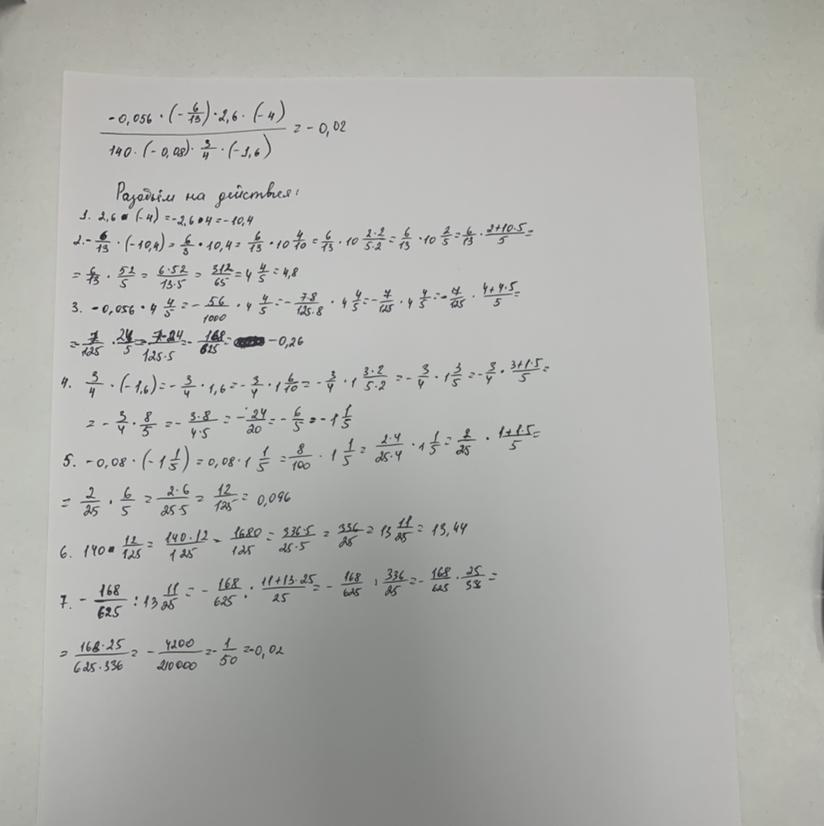 -0,056 · (-6/13) · 2,6 · (-4)
140 · (-0,08) · 3/4 · (-1,6) = -0,02
Разобъём на действия:
1. 2,6 · (-4) = -2,6 · 4 = -10,4
2. -6/13 · (-10,4) = 6/3 · 10,4 = 6/13 · 10 4/10 = 6/13 · 10 2·2/5·2 = 6/13 · 10 2/5 = 6/13 · 2+10·5/5 =
= 6/13 · 52/5 = 6·52/13·5 = 312/65 = 4 4/5 = 4,8
3. -0,056 · 4 4/5 = -56/1000 · 4 4/5 = -7·8/125·8 · 4 4/5 = -7/125 · 4 4/5 = -7/125 · 4+4·5/5 =
= 7/125 · 24/5 = 7·24/125·5 = -168/625 = -0,26
4. 3/4 · (-1,6) = -3/4 · 1,6 = -3/4 · 1 6/10 = -3/4 · 1 3·2/5·2 = -3/4 · 1 3/5 = -3/4 · 3+1·5/5 =
= -3/4 · 8/5 = -3·8/4·5 = -24/20 = -6/5 = -1 1/5
5. -0,08 · (-1 1/5) = 0,08 · 1 1/5 = 8/100 · 1 1/5 = 2·4/25·4 · 1 1/5 = 2/25 · 1+1·5/5 =
= 2/25 · 6/5 = 2·6/25·5 = 12/125 = 0,096
6. 140 · 12/125 = 140·12/125 = 1680/125 = 336·5/25·5 = 336/25 = 13 11/25 = 13,44
7. -168/625 : 13 11/25 = -168/625 : 11+13·25/25 = -168/625 : 336/25 = -168/625 · 25/336 =
= 168·25/625·336 = -4200/210000 = -1/50 = -0,02